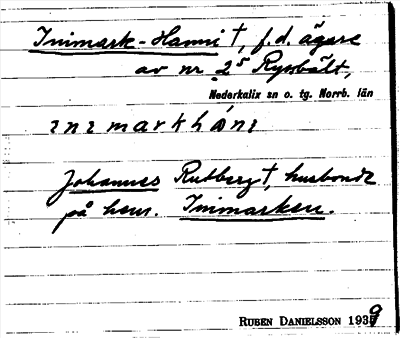 Inimark-Hanni †, f.d. ägare
av nr 2⁵ Rysbält,
Nederkalix sn o. tg. Norrb. län
ɪnɪmarkhánɪ
Johannes Rutberg †, husbonde
på hem. Inimarken.
RUBEN DANIELSSON 1939